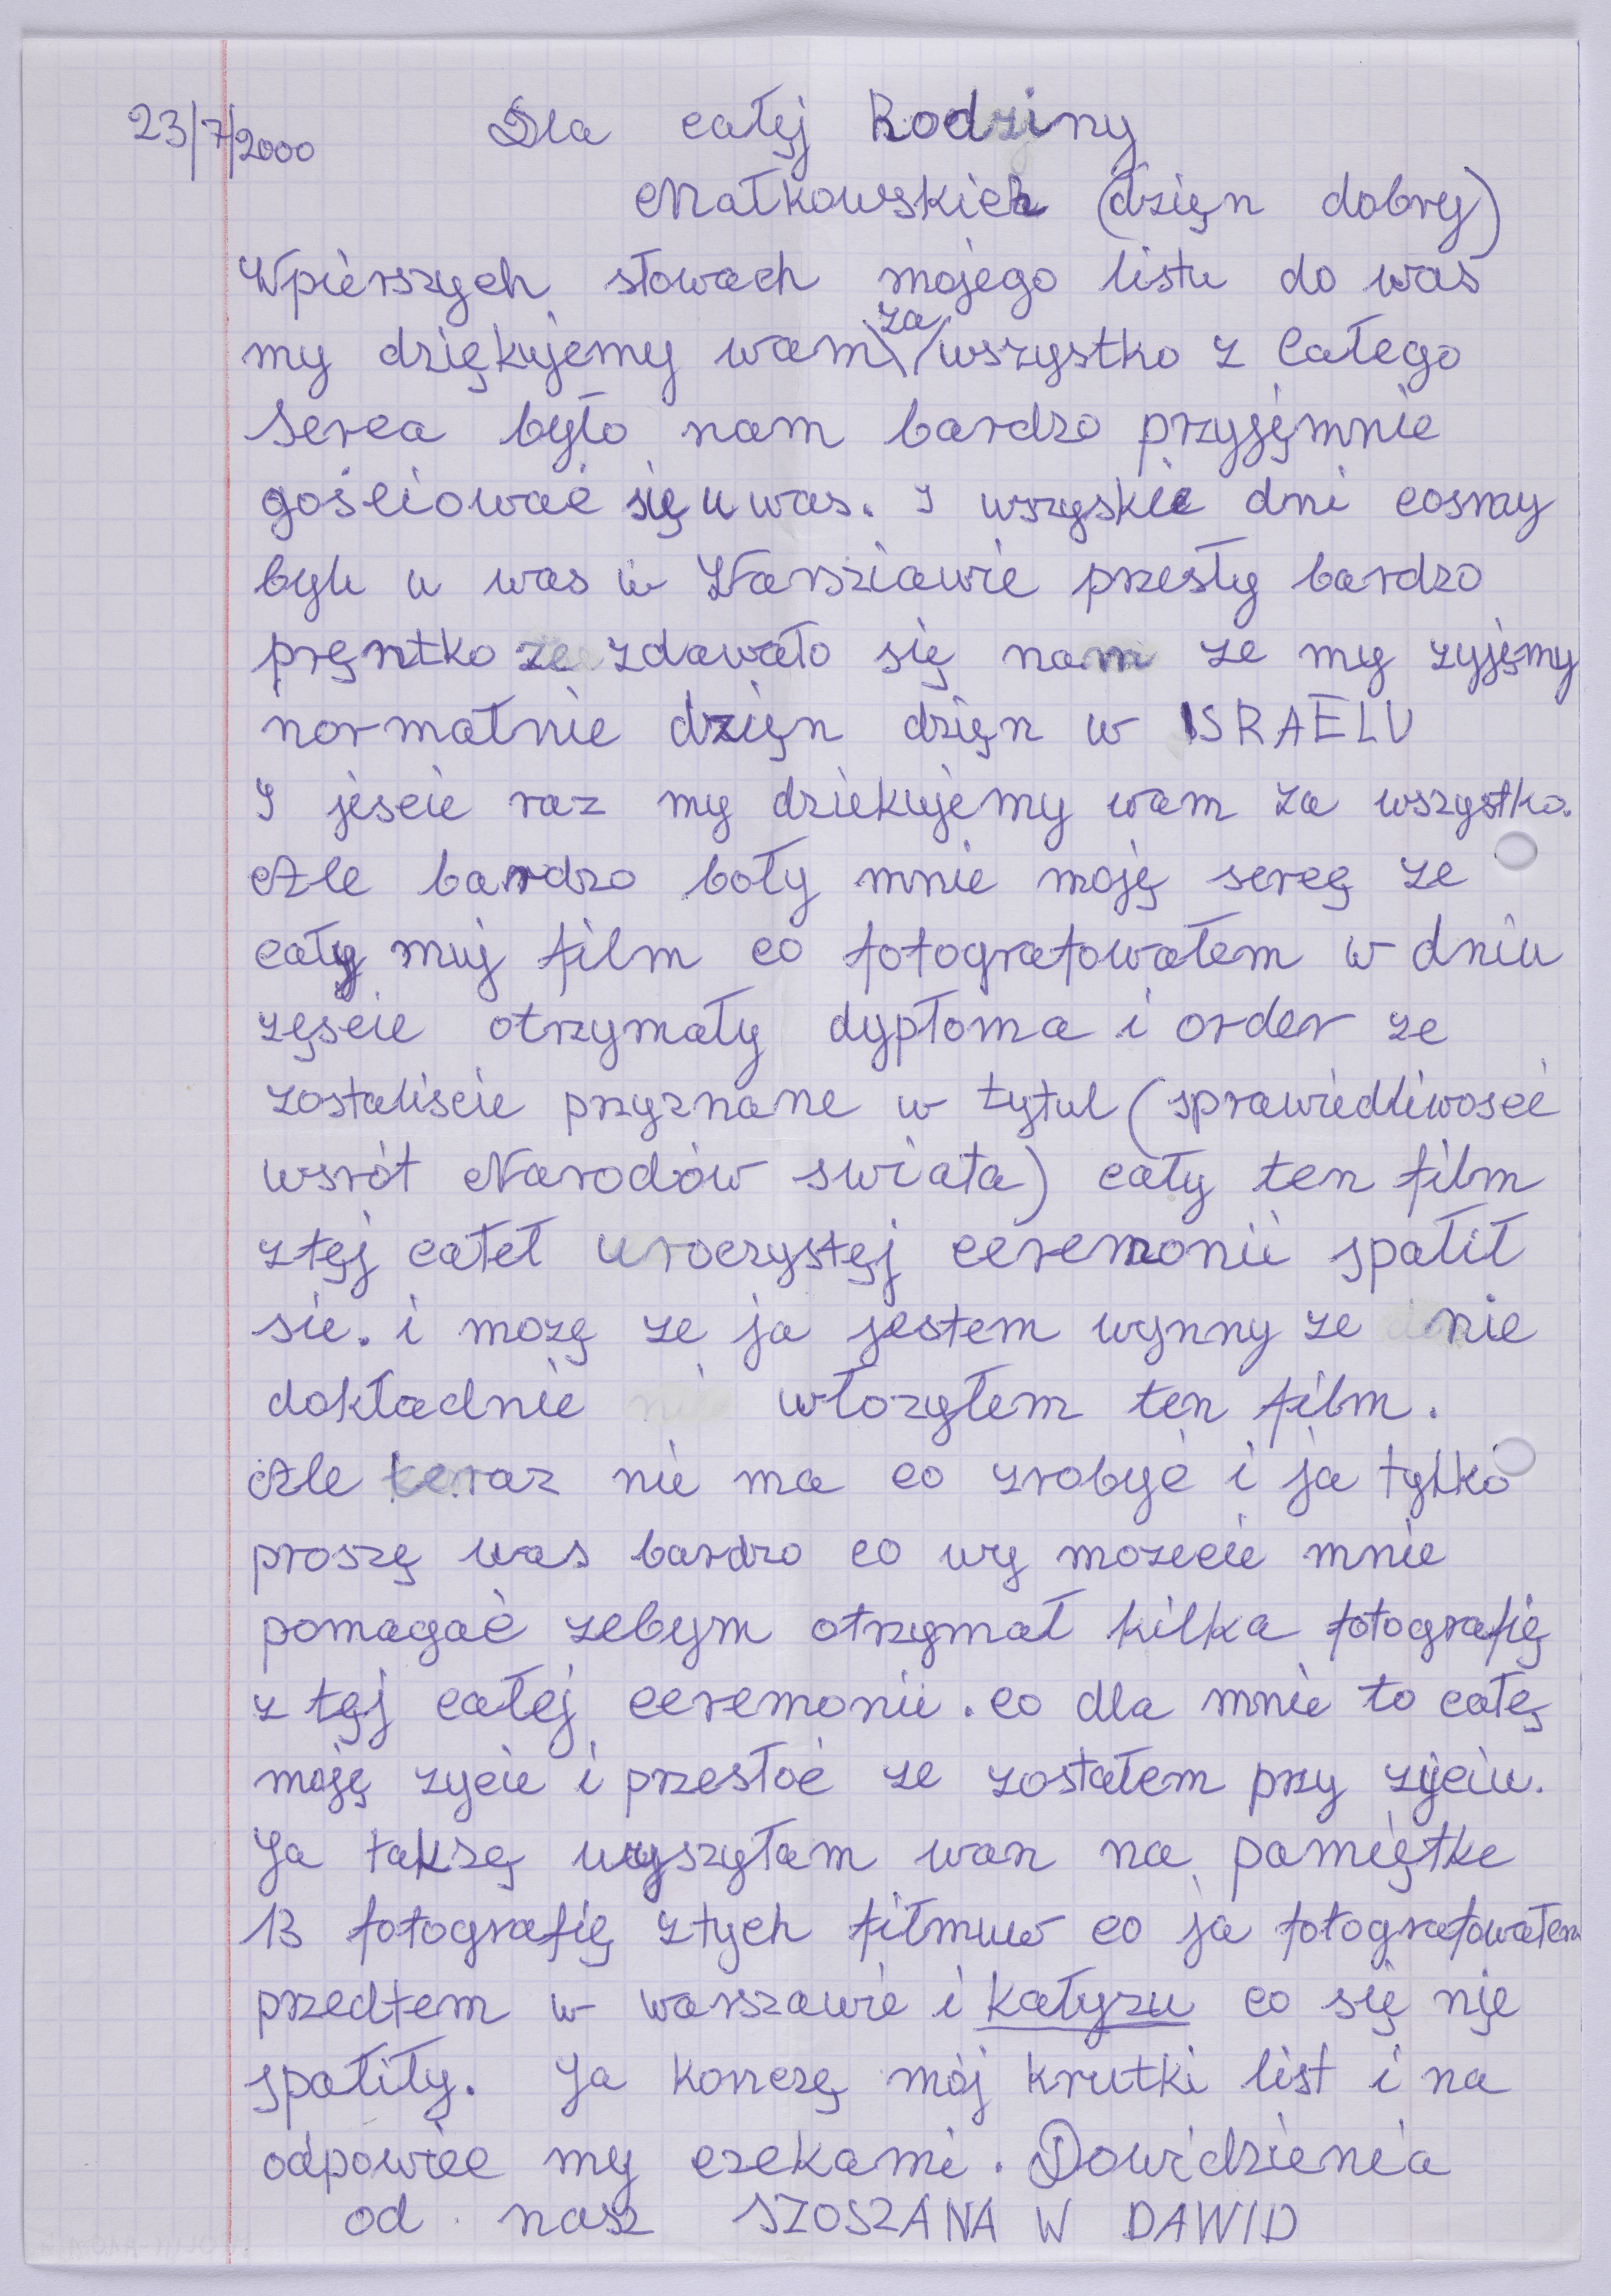 23/7/2000 Dla całej Rodziny
Małkowskich (dzięn dobry)
Wpierszych słowach mojego listu do was
my dziękujemy wam za wszystko z całego
serca było nam bardzo przyjęmnie
gościować się u was. I wszyskie dni cosmy
byli u was w Warsziawie przesły bardzo
pręntko ze zdawało się nam ze my zyjęmy
normałnie dzięn dzięn w ISRAELU
I jescie raz my dziekujemy wam za wszystko.
Ale bardzo boły mnie moję sercę ze
cały muj film co fotografowałem w dniu
zęscie otrzymały dypłoma i order ze
zostaliscie przyznane w tytul (sprawiedliwoscć
wsrót Narodów swiata) cały ten film
ztęj całeł uroczystęj ceremonii spałił
sie. i mozę ze ja jestem wynny ze nie
dokładnie włozyłem ten film.
Ale teraz nie ma co zrobyć i ja tylko
proszę was bardzo co wy mozecie mnie
pomagać zebym otrzymał kilka fotografię
z tęj całej ceremonii. co dla mnie to całę
moję zycie i przesłoć ze zostałem przy zyciu.
Ja taksę wyszyłam wan na pamiętke
13 fotografię ztych fiłmuw co ja fotografowałem
przedtem w warszawie i kałyzu co się nię
spałiły. Ja konczę mój krutki list i na
odpowiec my czekami. Dowidzienia
od nasz SZOSZANA W DAWID